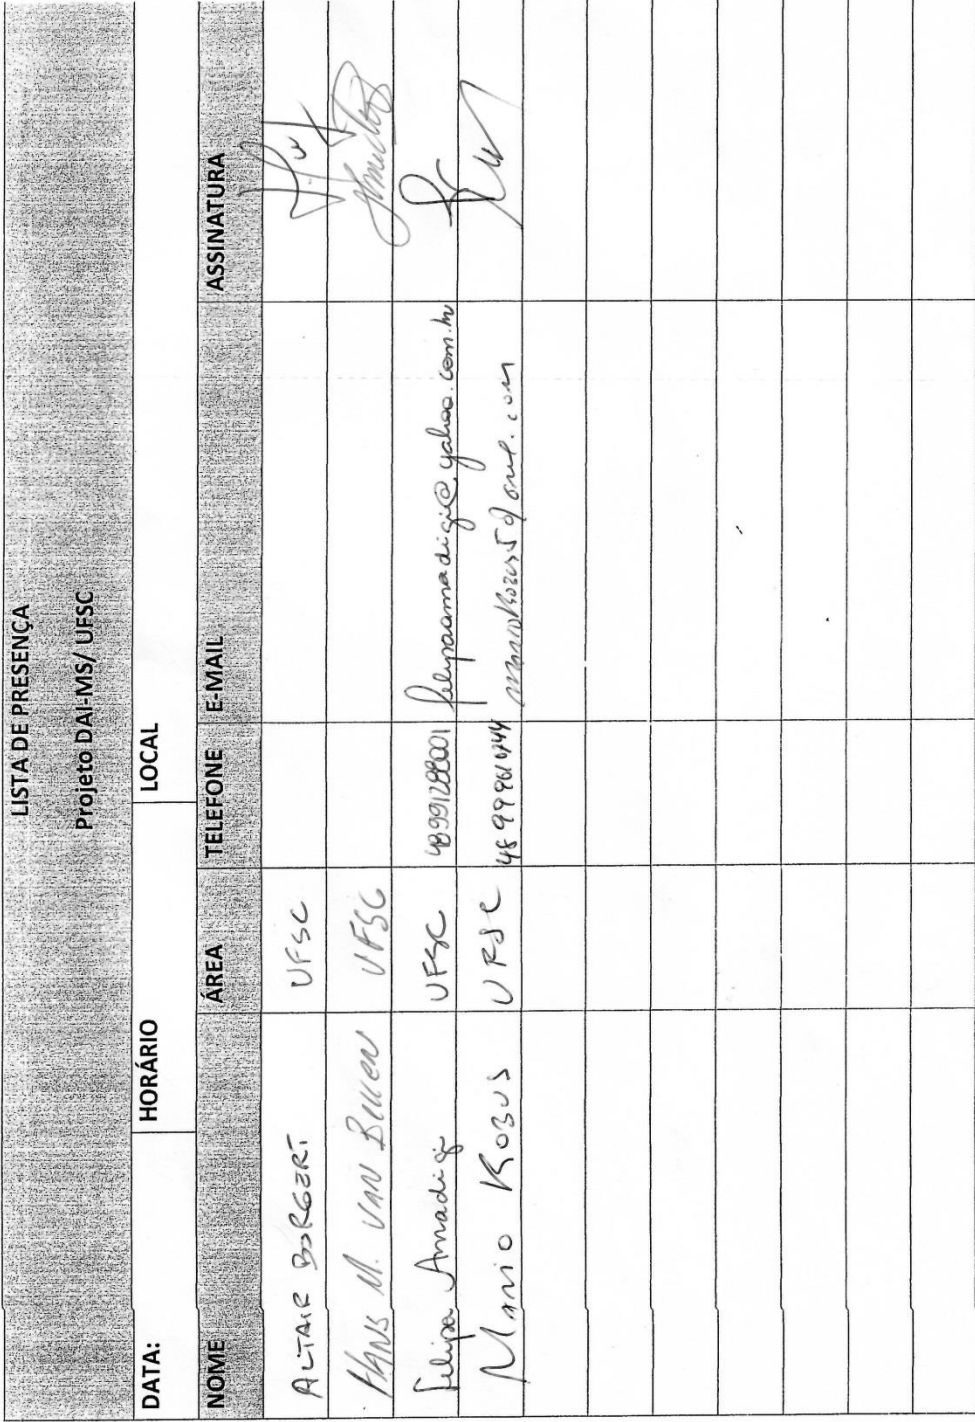 LISTA DE PRESENÇA
Projeto DAI-MS/ UFSC
DATA: HORÁRIO LOCAL
NOME ÁREA TELEFONE E-MAIL ASSINATURA
ALTAIR BORGERT UFSC
HANS M. VAN BELLEN UFSC
Felipa Amadigi UFSC 48991288001 felipaamadigi@yahoo.com.br
Mario Kozus UFSC